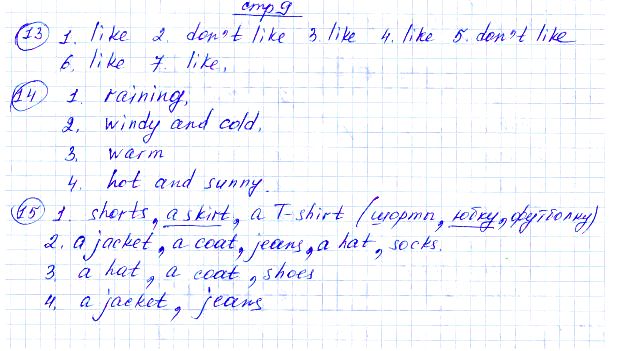 стр 9
13 1. like 2. don't like 3. like 4. like 5. don't like
6. like 7. like.
14 1. raining.
2. windy and cold.
3. warm
4. hot and sunny.
15 1. shorts, a skirt, a T-shirt (шорты, юбку, футболку)
2. a jacket, a coat, jeans, a hat, socks.
3. a hat, a coat, shoes
4. a jacket, jeans